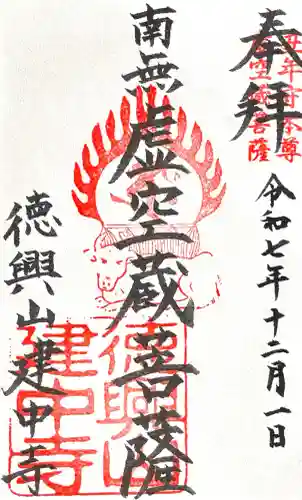 奉拝
丑年守本尊
虚空蔵菩薩
令和七年十二月一日
南無虚空蔵菩薩
徳興山建中寺
徳興山
建中寺